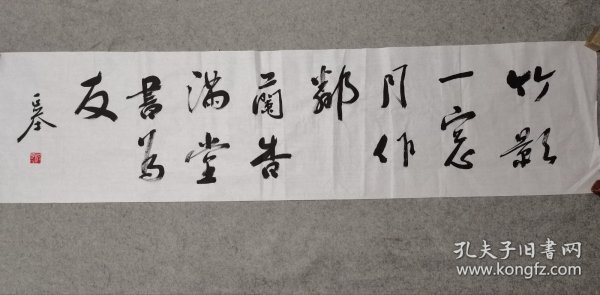 竹影
一窓
月作
鄰
蘭香
滿堂
書為
友
孔夫子旧书网
www.kongfz.com